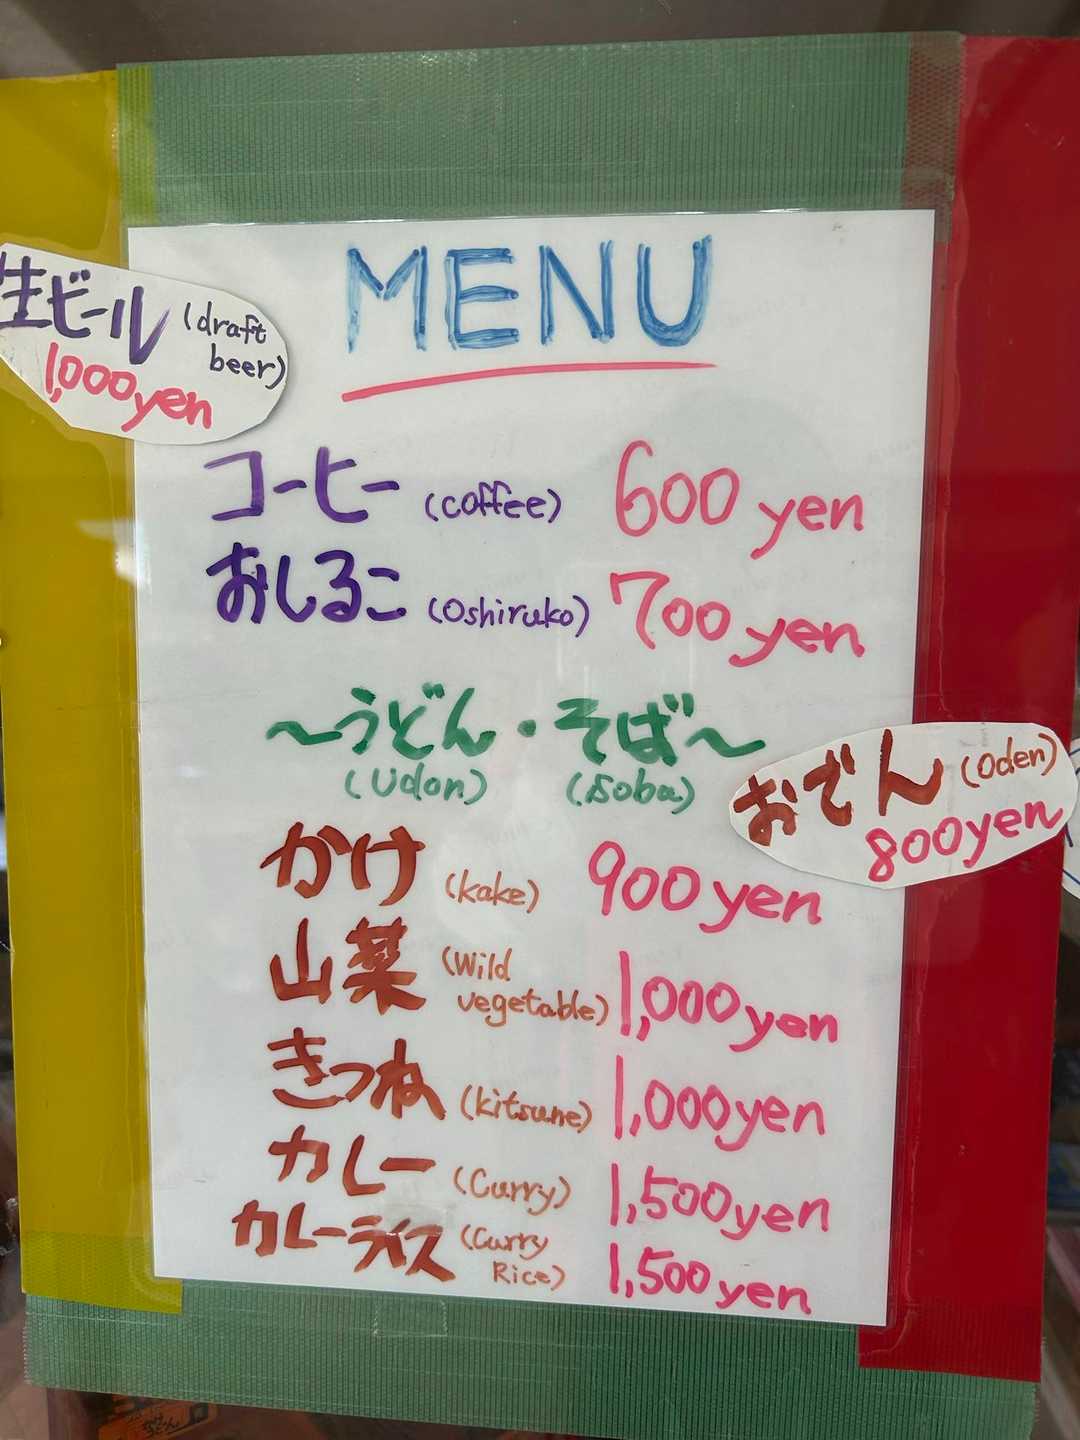 MENU
生ビール (draft beer)
1,000yen
コーヒー (coffee) 600 yen
おしるこ (Oshiruko) 700 yen
〜うどん・そば〜
(Udon) (Soba)
おでん (Oden)
800yen
かけ (kake) 900 yen
山菜 (Wild vegetable) 1,000 yen
きつね (kitsune) 1,000 yen
カレー (Curry) 1,500 yen
カレーライス (Curry Rice) 1,500 yen